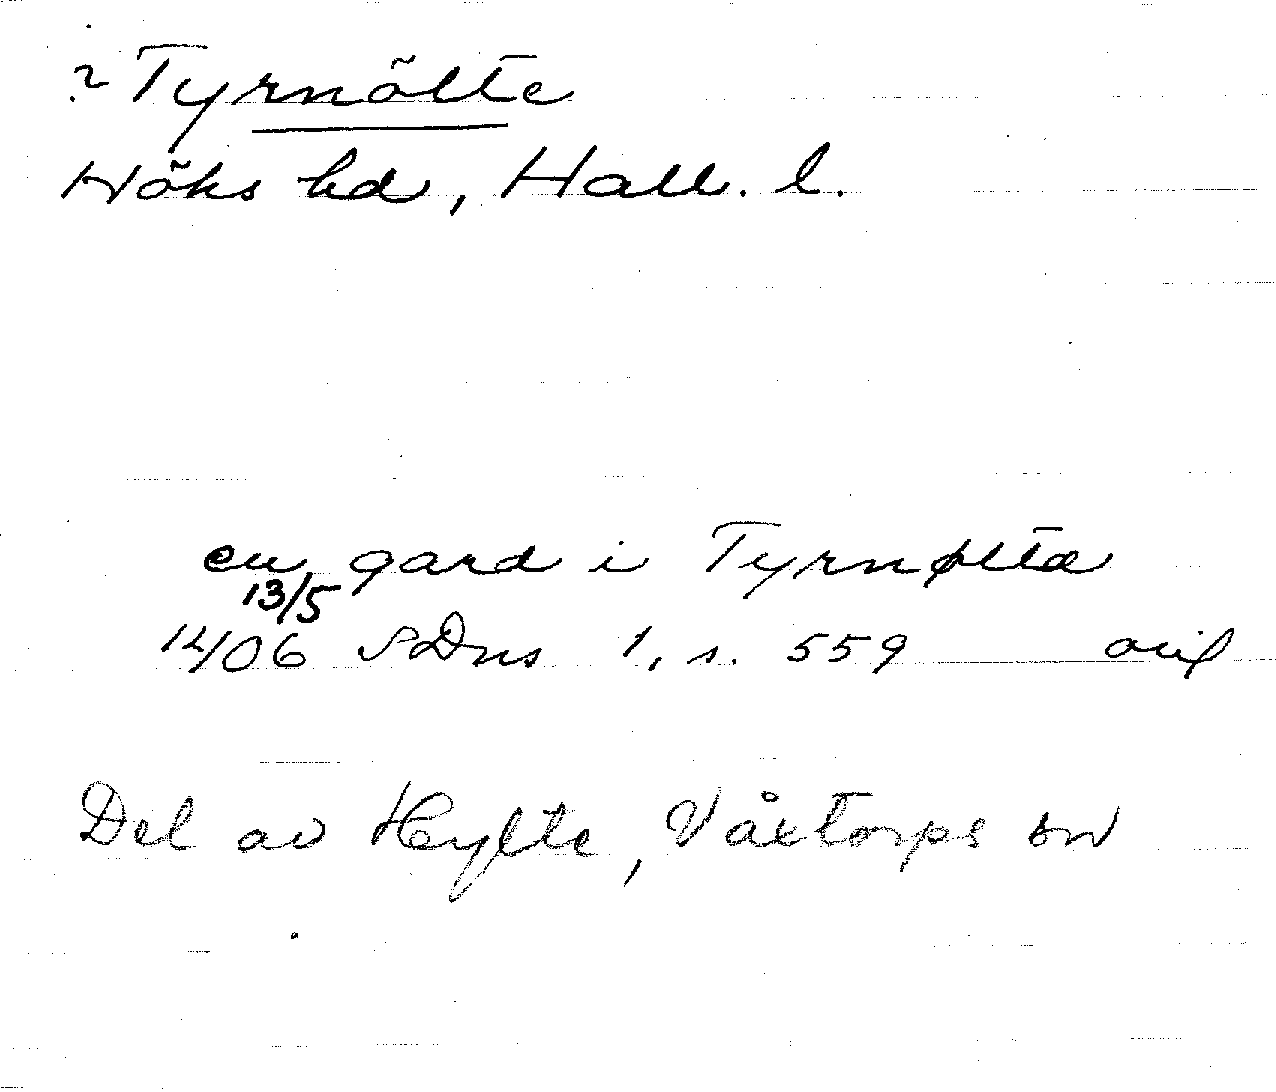 ? Tyrnölte
Höks hd, Hall. l.
en gard i Tyrnøltæ
13/5
1406 SDns 1, s. 559 avil
Del av Hylte, Våxtorps sn